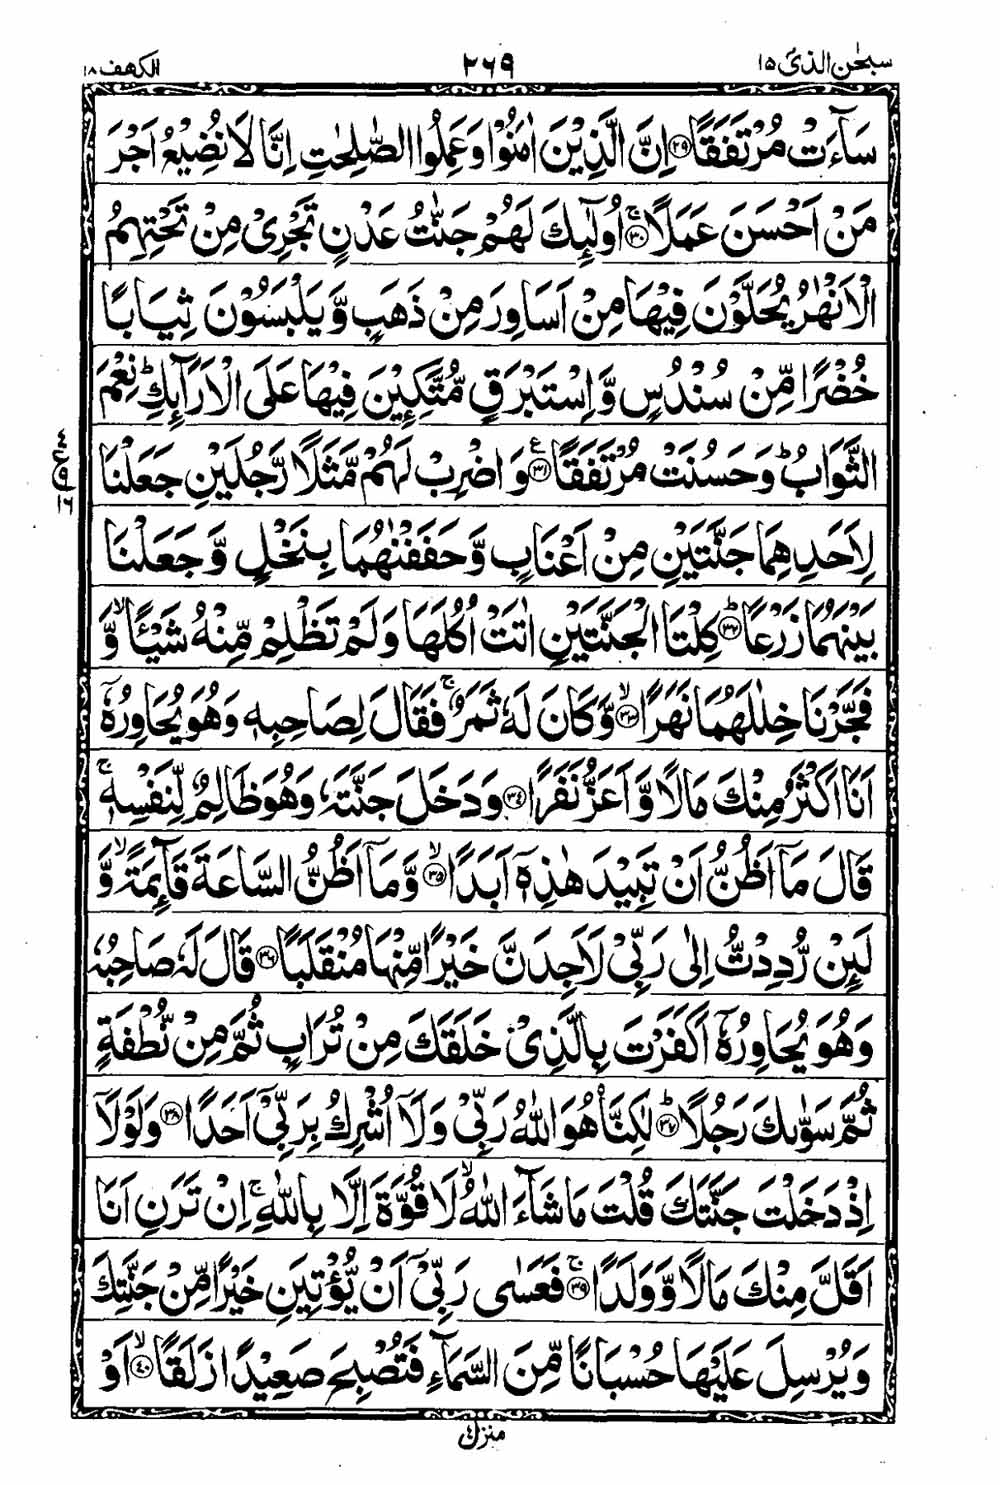 سبحٰن الذی ۱۵
۲۶۹
الکهف ۱۸
سَآءَتْ مُرْتَفَقًا ﴿۲۹﴾ اِنَّ الَّذِیْنَ اٰمَنُوْا وَعَمِلُوا الصّٰلِحٰتِ اِنَّا لَا نُضِیْعُ اَجْرَ
مَنْ اَحْسَنَ عَمَلًا ﴿۳۰﴾ۚ اُولٰٓئِكَ لَهُمْ جَنّٰتُ عَدْنٍ تَجْرِیْ مِنْ تَحْتِهِمُ
الْاَنْهٰرُ یُحَلَّوْنَ فِیْهَا مِنْ اَسَاوِرَ مِنْ ذَهَبٍ وَّیَلْبَسُوْنَ ثِیَابًا
خُضْرًا مِّنْ سُنْدُسٍ وَّاِسْتَبْرَقٍ مُّتَّكِـِٕیْنَ فِیْهَا عَلَی الْاَرَآئِكِؕ نِعْمَ
الثَّوَابُؕ وَحَسُنَتْ مُرْتَفَقًا ﴿۳۱﴾ع وَاضْرِبْ لَهُمْ مَّثَلًا رَّجُلَیْنِ جَعَلْنَا
لِاَحَدِهِمَا جَنَّتَیْنِ مِنْ اَعْنَابٍ وَّحَفَفْنٰهُمَا بِنَخْلٍ وَّجَعَلْنَا
بَیْنَهُمَا زَرْعًا ﴿۳۲﴾ؕ كِلْتَا الْجَنَّتَیْنِ اٰتَتْ اُكُلَهَا وَلَمْ تَظْلِمْ مِّنْهُ شَیْـًٔاۙ وَّ
فَجَّرْنَا خِلٰلَهُمَا نَهَرًا ﴿۳۳﴾ۙ وَّكَانَ لَهٗ ثَمَرٌۚ فَقَالَ لِصَاحِبِهٖ وَهُوَ یُحَاوِرُهٗۤ
اَنَا اَكْثَرُ مِنْكَ مَالًا وَّاَعَزُّ نَفَرًا ﴿۳۴﴾ وَدَخَلَ جَنَّتَهٗ وَهُوَ ظَالِمٌ لِّنَفْسِهٖۚ
قَالَ مَاۤ اَظُنُّ اَنْ تَبِیْدَ هٰذِهٖۤ اَبَدًا ﴿۳۵﴾ۙ وَّمَاۤ اَظُنُّ السَّاعَةَ قَآئِمَةًۙ وَّ
لَىِٕنْ رُّدِدْتُّ اِلٰی رَبِّیْ لَاَجِدَنَّ خَیْرًا مِّنْهَا مُنْقَلَبًا ﴿۳۶﴾ قَالَ لَهٗ صَاحِبُهٗ
وَهُوَ یُحَاوِرُهٗۤ اَكَفَرْتَ بِالَّذِیْ خَلَقَكَ مِنْ تُرَابٍ ثُمَّ مِنْ نُّطْفَةٍ
ثُمَّ سَوّٰىكَ رَجُلًا ﴿۳۷﴾ؕ لٰكِنَّا۠ هُوَ اللّٰهُ رَبِّیْ وَلَاۤ اُشْرِكُ بِرَبِّیْۤ اَحَدًا ﴿۳۸﴾ وَلَوْلَاۤ
اِذْ دَخَلْتَ جَنَّتَكَ قُلْتَ مَا شَآءَ اللّٰهُۙ لَا قُوَّةَ اِلَّا بِاللّٰهِۚ اِنْ تَرَنِ اَنَا
اَقَلَّ مِنْكَ مَالًا وَّوَلَدًا ﴿۳۹﴾ۚ فَعَسٰی رَبِّیْۤ اَنْ یُّؤْتِیَنِ خَیْرًا مِّنْ جَنَّتِكَ
وَیُرْسِلَ عَلَیْهَا حُسْبَانًا مِّنَ السَّمَآءِ فَتُصْبِحَ صَعِیْدًا زَلَقًا ﴿۴۰﴾ۙ اَوْ
۴
ع ۹
۱۶
منزل ۴